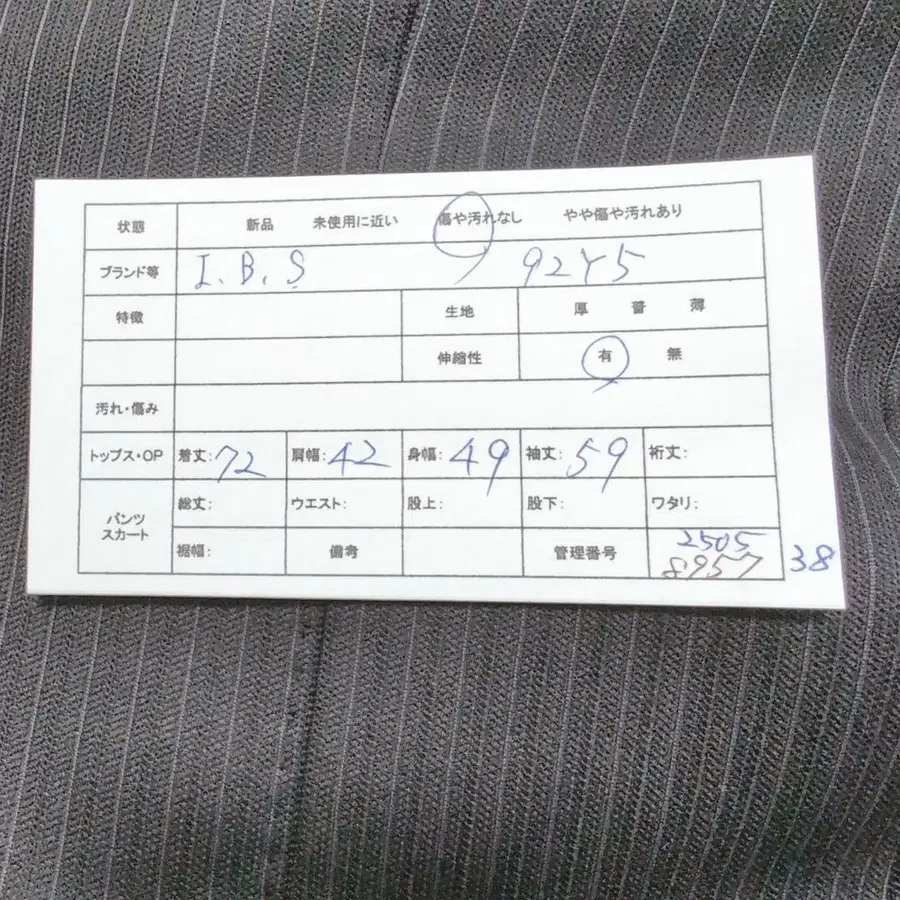 状態 新品 未使用に近い 傷や汚れなし やや傷や汚れあり
ブランド等 I.B.S 92Y5
特徴 生地 厚 普 薄
伸縮性 有 無
汚れ・傷み
トップス・OP 着丈:72 肩幅:42 身幅:49 袖丈:59 裄丈:
パンツ 総丈: ウエスト: 股上: 股下: ワタリ:
スカート
裾幅: 備考 管理番号 2505
8957 38